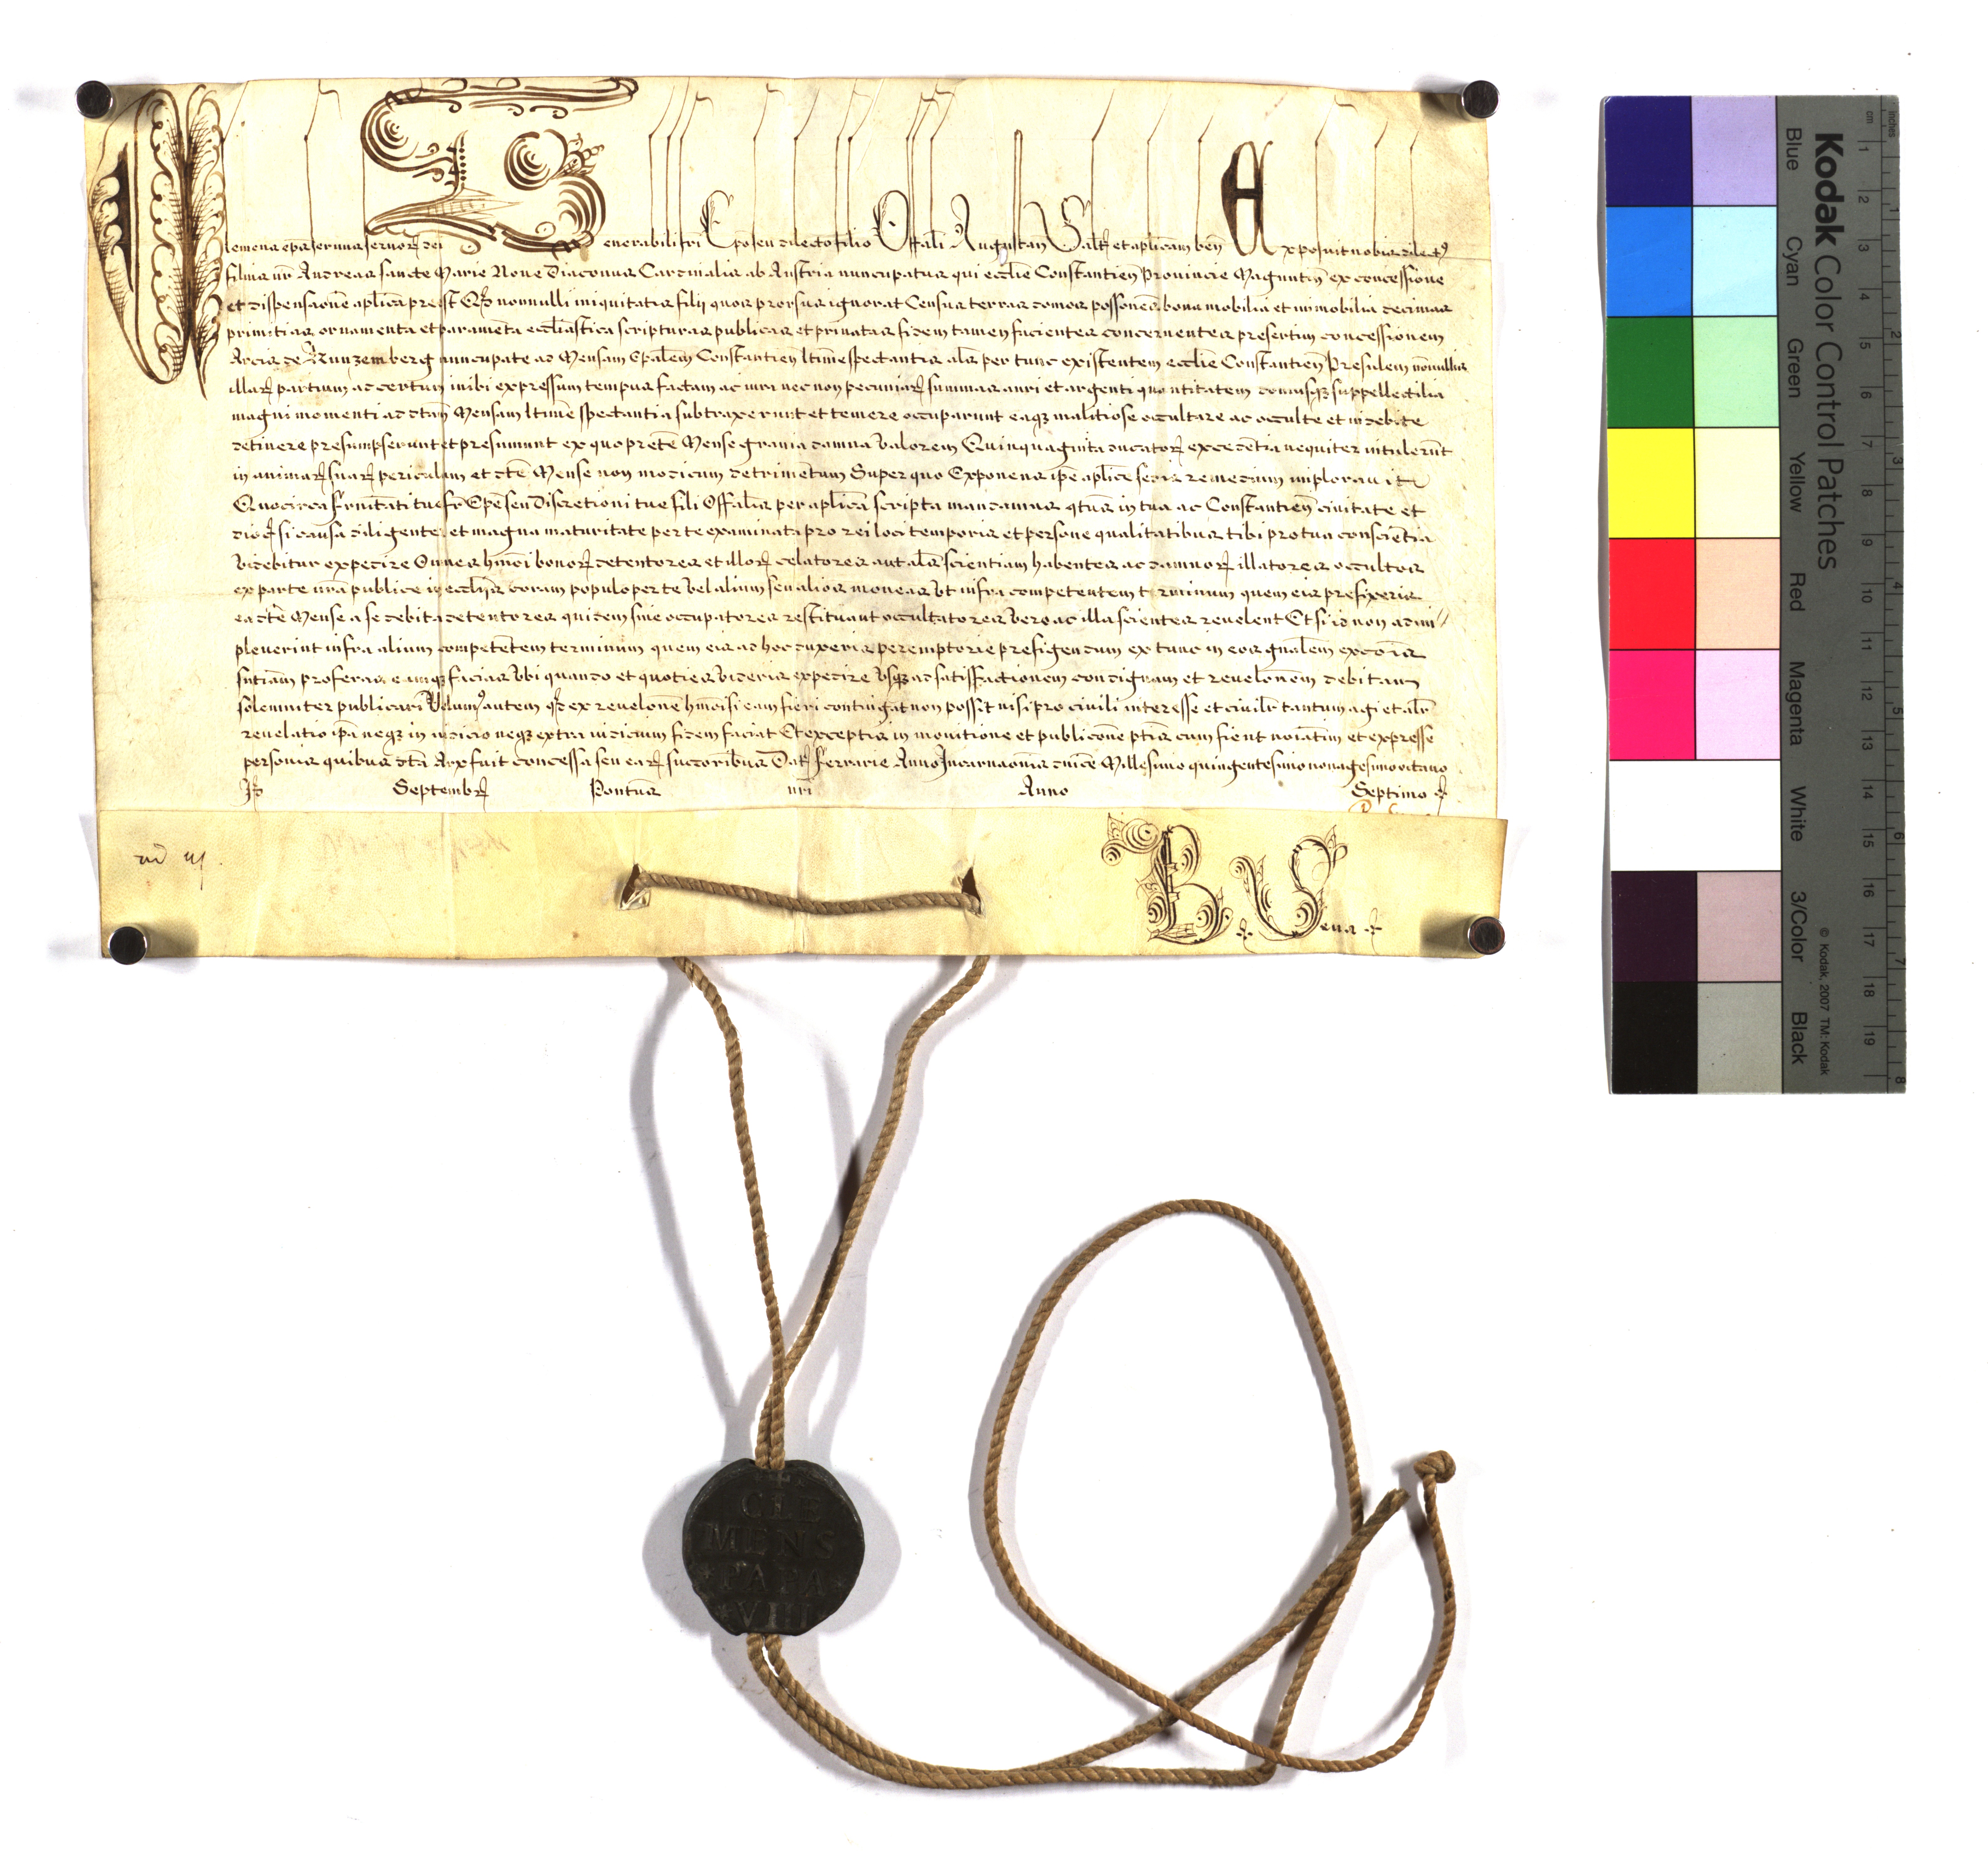 Clemens ep̄us servus servor̃ dei Venerabili fr̄i Ep̄o seu dilecto filio Offāli Augustan̄ Salt̃ et apl̄icam ben̄ Exposuit nobis dilect9
filius nr̄ Andreas sancte Marie Nove Diaconus Cardinalis ab Austria nuncupatus qui eccl̄ie Constantien̄ Provincie Maguntin̄ ex concessione
et dispensatione apl̄ica preest Qđ nonnulli iniquitatis filij quos prorsus ignorat Census terras domos possōnes bona mobilia et immobilia decimas
primitias ornamenta et paramenta eccl̄iastica scripturas publicas et privatas fidem tamen facientes concernentes presertim concessionem
Arcis de nuncupate ad Mensam Ep̄alem Constantien̄ l̄time spectantis al̄s per tunc existentem eccl̄ie Constantien̄ Presulem nōnullis
illar̃ partium ad certum inibi expressum tempus factam ac iura necnon pecuniar̃ summas auri et argenti quantitatem domusq̃ suppellectilia
magni momenti ad dc̄am Mensam l̄time spectantia subtraxerunt et temere occuparunt eaq̃ malitiose occultare ac occulte et indebite
detinere presumpserunt et presumunt ex quo prefte Mense gravia damna valorem Quinquaginta ducator̃ excedētia nequiter intulerūt
in animar̃ suar̃ periculum et dc̄e Mense non modicum detrimentum Super quo Exponens ip̄e apl̄ice sedis remedium imploravit
Quocirca fr̄nitati tue fr̄ Ep̄e seu Discretioni tue fili Offālis per apl̄ica scripta mandamus qtūs in tua ac Constantien̄ civitate et
dioc̃ si causa diligenter et magna maturitate per te examinata pro rei loci temporis et persone qualitatibus tibi pro tua conscientia
videbitur expedire Omnes hm̄oi bonor̃ detentores et illor̃ celatores aut al̄s scientiam habentes ac damnor̃ illatores occultos
ex parte nr̄a publice in eccl̄ijs coram populo per te vel alium seu alios moneas vt infra competentem terminum quem eis prefixeris
ea dc̄e Mense a se debita detentores quidem sive occupatores restituant occultatores vero ac illa scientes revelent Et si id non adim//
pleverint infra alium competētem terminum quem eis ad hoc duxeris peremptorie prefigendum ex tunc in eos gn̄alem excōis
sn̄tiam proferas eamq̃ facias vbi quando et quoties videris expedire vsq̃ ad satisfactionem condignam et revelōnem debitam
solemniter publicari Volum9 autem qđ ex revelōne hm̄oi si eam fieri contingat non possit nisi pro civili interesse et civilr̃ tantum agi et alr̃
revelatio ip̄a neq̃ in iudicio neq̃ extra iudicium fidem faciat Et exceptis in monitione et publicōne ptis cum fient noīatim et expresse
personis quibus dc̄a Arx fuit concessa seu ear̃ succoribus Dat̃ Ferrarie Anno Incarnaōnis dn̄ice Millesimo quingentesimo nonagesimo octavo
Septembr̃ Pontus nr̄i Anno Septimo
B. Vena
+
CLE
MENS
PAPA
VIII
Kodak Color Control Patches
© Kodak, 2007 TM: Kodak
Blue Cyan Green Yellow Red Magenta White 3/Color Black
cm 1 2 3 4 5 6 7 8 9 10 11 12 13 14 15 16 17 18 19
Inches 1 2 3 4 5 6 7 8